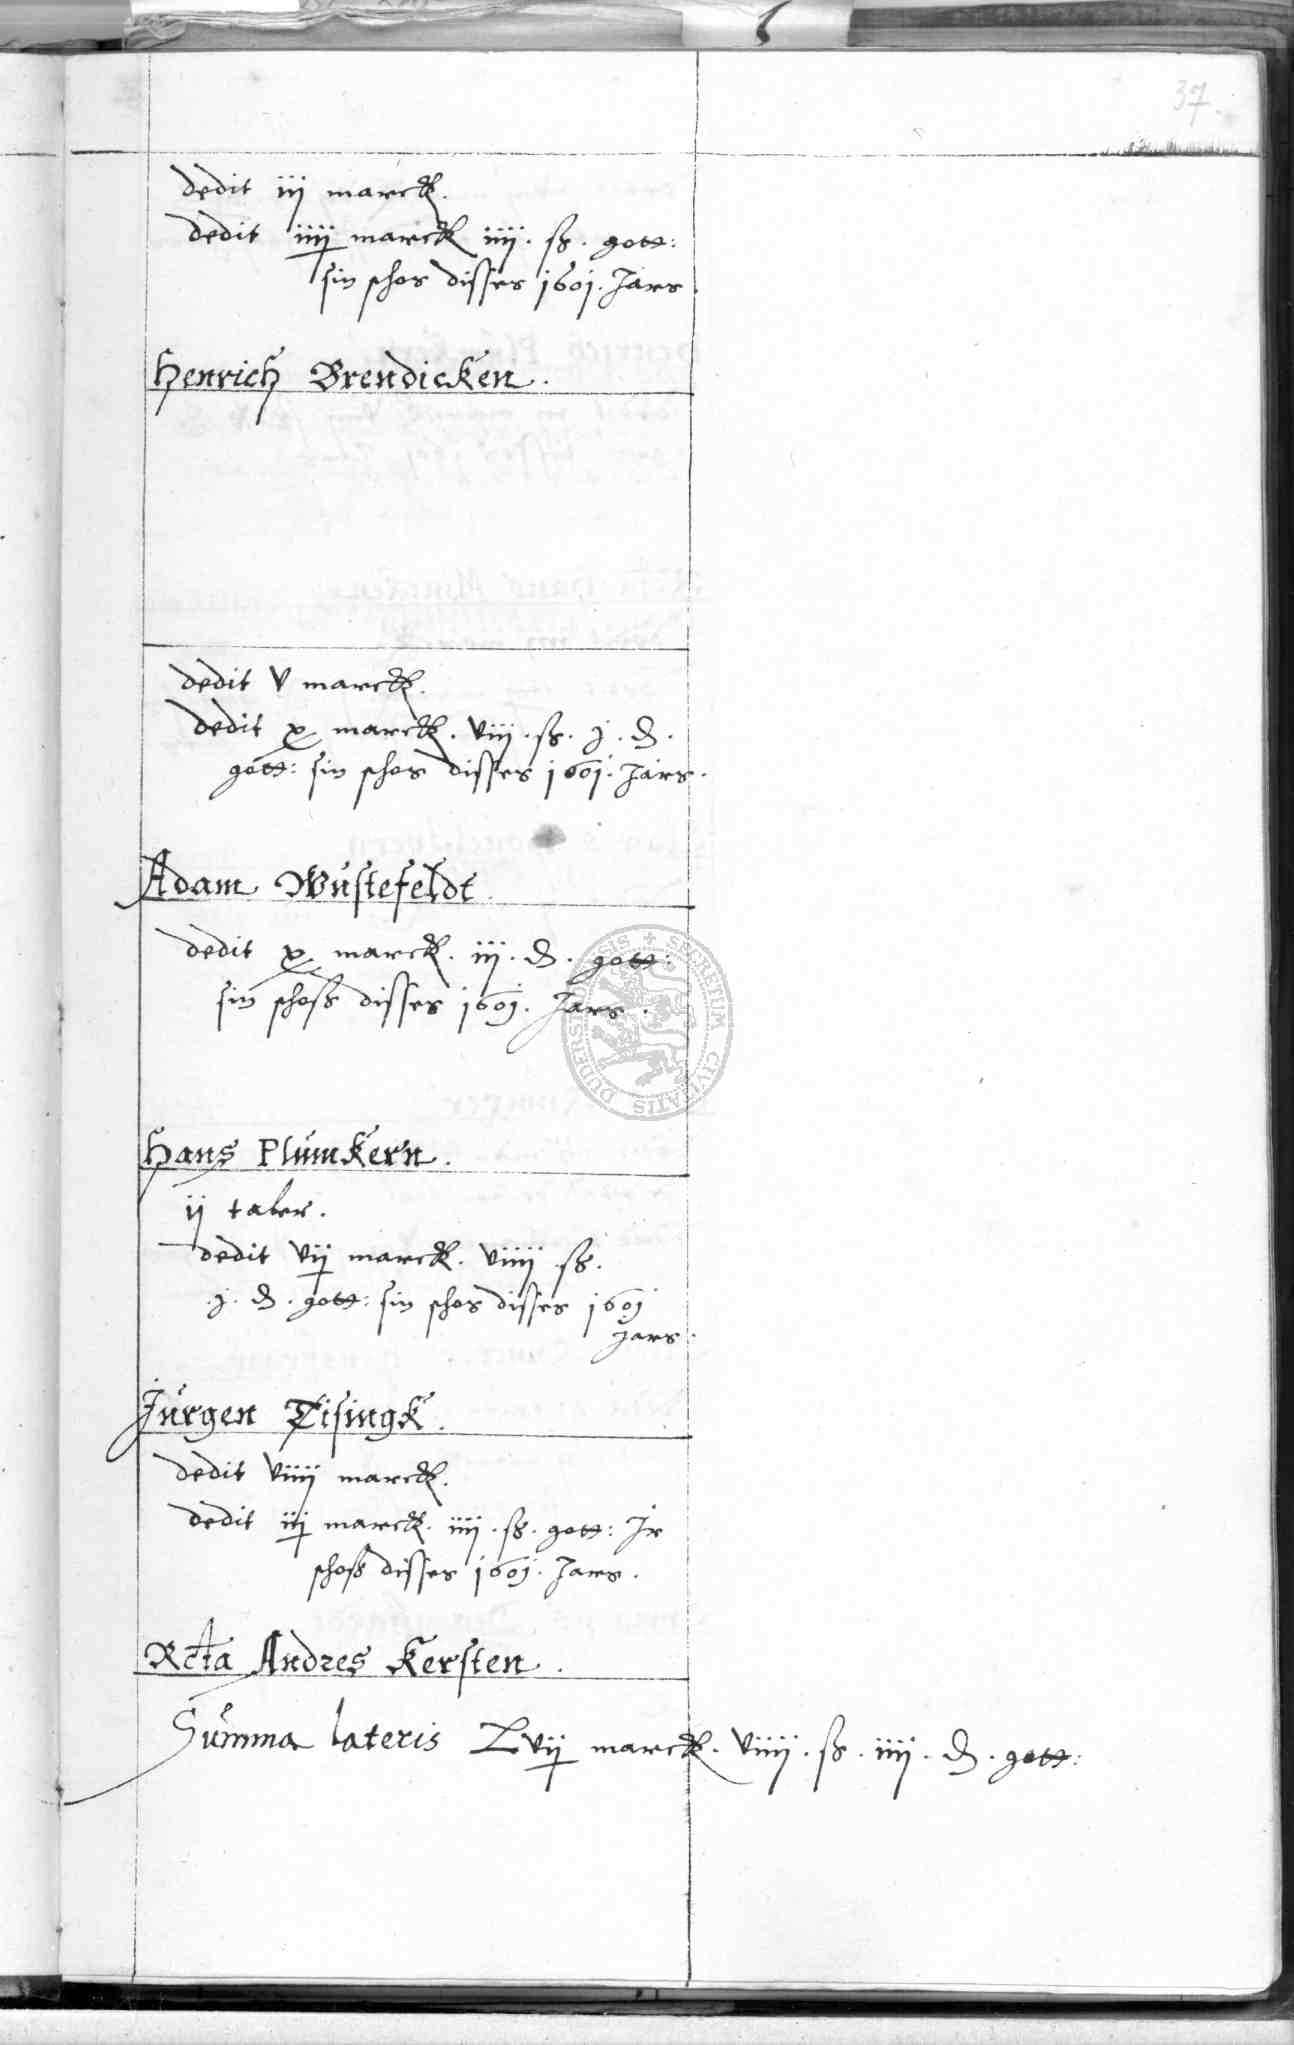 37.
dedit iij marck.
dedit iiij marck iiij. ß. gott:
sin schos disses 1601. Jars.
Henrich Brendicken.
dedit v marck.
dedit x marck. viij. ß. j. d.
gott: sin schos disses 1601. Jars.
Adam Wustefeldt.
dedit x marck. iij. d. gott:
sin schoß disses 1601. Jars.
SECRETUM CIVITATIS DUDERSTADENSIS
Hans Plumkern.
ij taler.
dedit vij marck. viiij ß.
j. d. gott: sin schos disses 1601
Jars.
Jurgen Tisingk.
dedit viiij marck.
dedit iij marck. iiij. ß. gott: Ir
schoß disses 1601. Jars.
Rcta Andres Kersten.
Summa lateris Lvij marck. viiij. ß. iiij. d. gott: